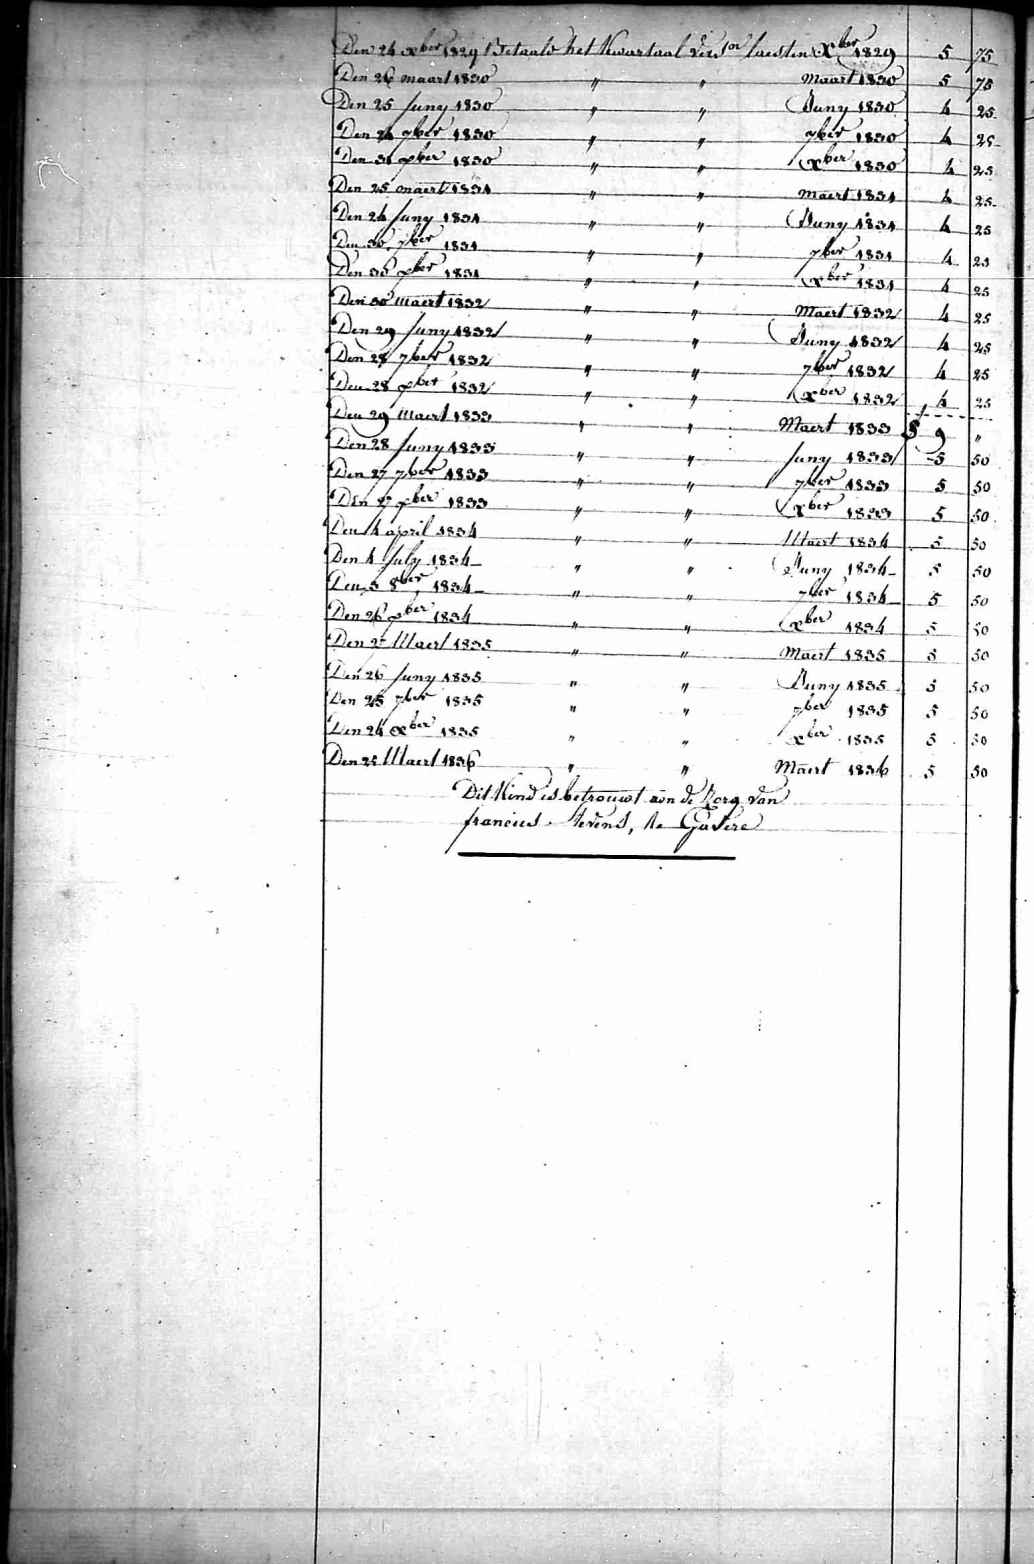 Den 24 xber 1829 Betaald het Kwartaal verston laesten xber 1829 5 75
Den 26 maart 1830 " " Maart 1830 5 75
Den 25 Juny 1830 " " Juny 1830 4 25
Den 24 7ber 1830 " " 7ber 1830 4 25
Den 31 xber 1830 " " xber 1830 4 25
Den 25 maert 1831 " " Maert 1831 4 25
Den 24 Juny 1831 " " Juny 1831 4 25
Den 30 7ber 1831 " " 7ber 1831 4 25
Den 30 xber 1831 " " xber 1831 4 25
Den 30 Maert 1832 " " Maert 1832 4 25
Den 29 Juny 1832 " " Juny 1832 4 25
Den 28 7ber 1832 " " 7ber 1832 4 25
Den 28 xber 1832 " " xber 1832 4 25
Den 29 Maert 1833 " " Maert 1833 9 "
Den 28 Juny 1833 " " Juny 1833 5 50
Den 27 7ber 1833 " " 7ber 1833 5 50
Den 27 xber 1833 " " xber 1833 5 50
Den 4 april 1834 " " Maert 1834 5 50
Den 4 July 1834 " " Juny 1834 5 50
Den 3 8ber 1834 " " 7ber 1834 5 50
Den 26 xber 1834 " " xber 1834 5 50
Den Maert 1835 " " Maert 1835 5 50
Den 26 Juny 1835 " " Juny 1835 5 50
Den 25 7ber 1835 " " 7ber 1835 5 50
Den 24 xber 1835 " " xber 1835 5 50
Den 25 Maert 1836 " " Maert 1836 5 50
Dit Kind is betrouwt aen de Zorg van
francies Stevens, te Gavere